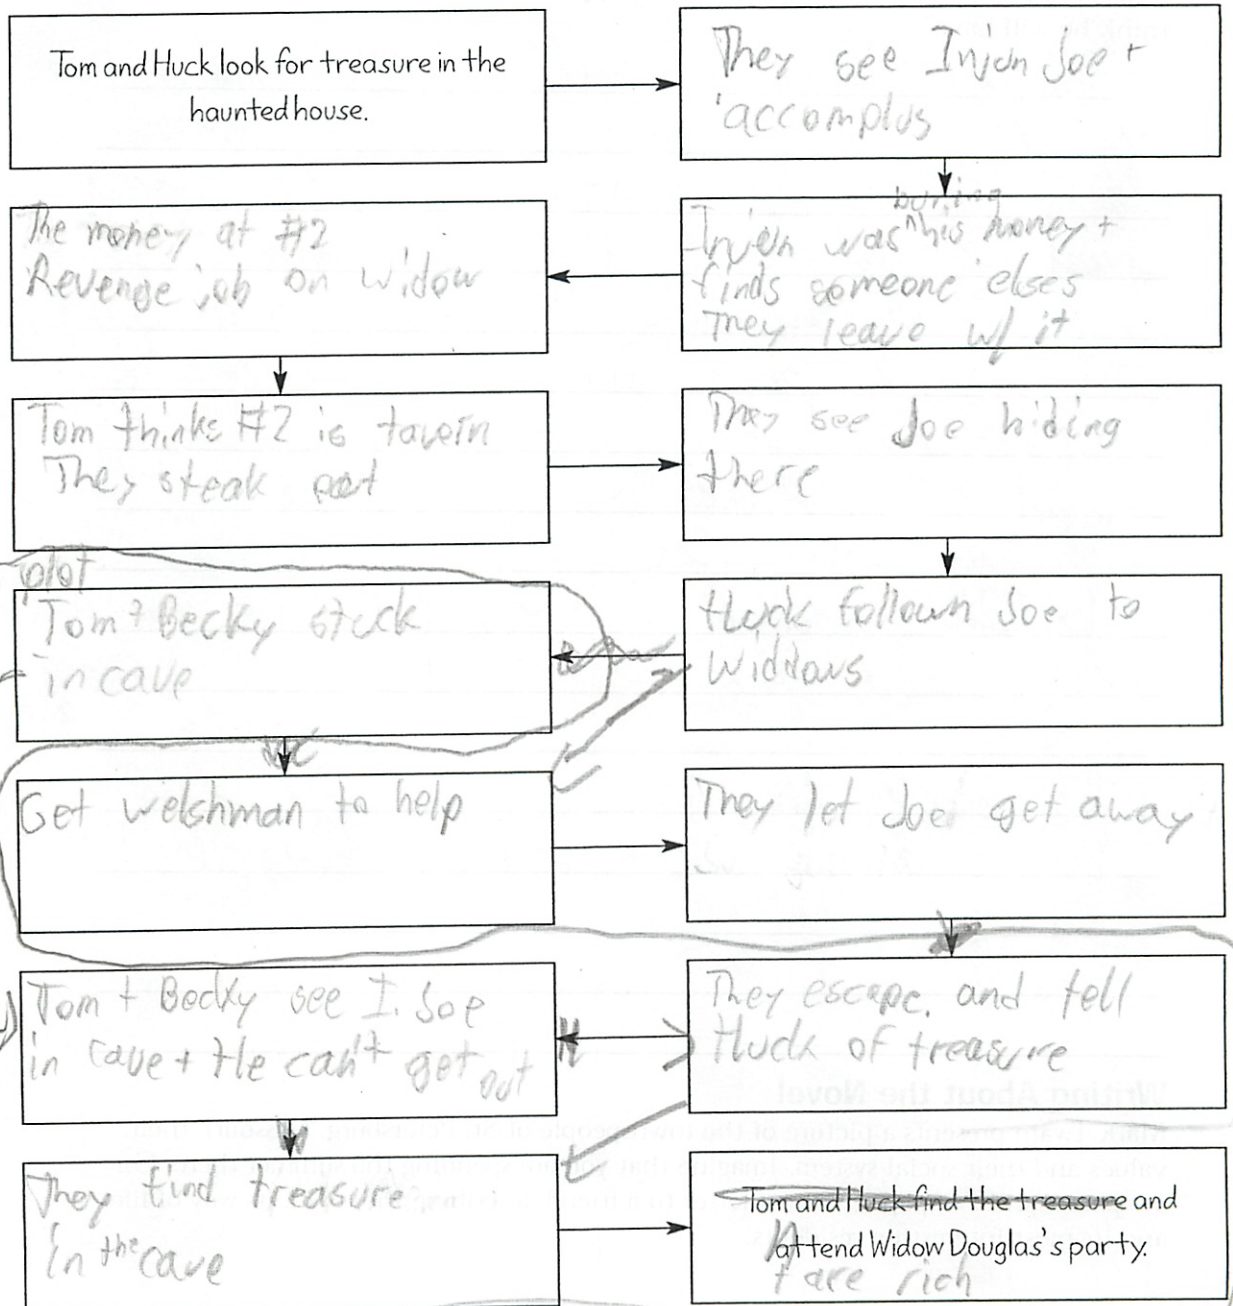 Tom and Huck look for treasure in the
haunted house.
They see Injun Joe +
accomplus
burring
Injun was ^ his money +
finds someone elses
They leave w/ it
The money at #2
Revenge job on widow
Tom thinks #2 is tavern
They steak out
They see Joe hiding
there
Huck follown Joe to
widdows
plot
Tom + Becky stuck
in cave
Get welshman to help
They let Joe get away
Tom + Becky see I. Joe
in cave + He can't get out
They escape and tell
Huck of treasure
They find treasure
in the cave
Tom and Huck find the treasure and
attend Widow Douglas's party.
+ are rich
Writing About the Novel